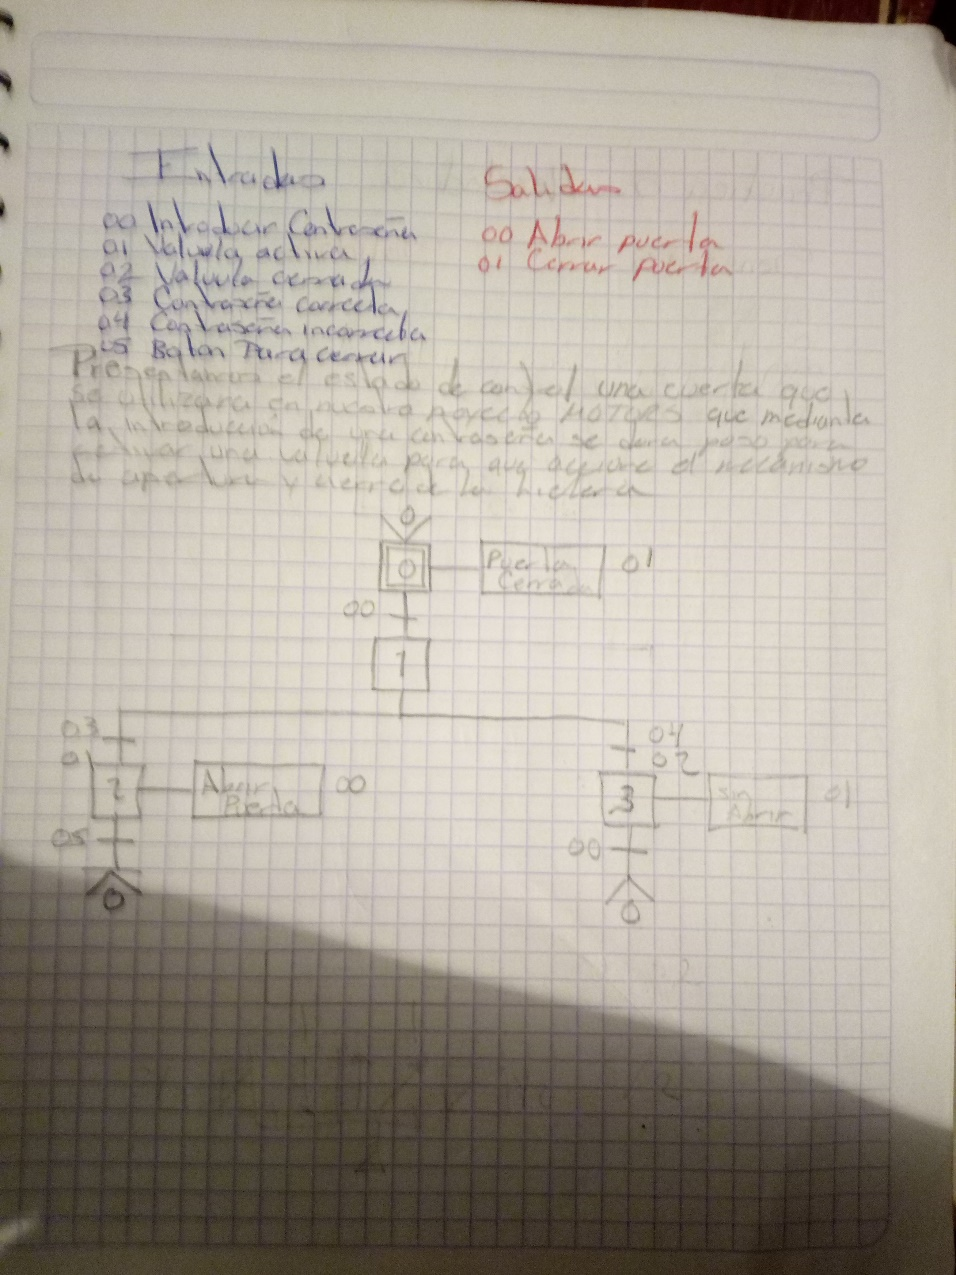 Entradas
Salidas
00 Introducir Contraseña
01 Valvula activa
02 Valvula cerrada
03 Contraseña correcta
04 Contraseña incorrecta
05 Boton Para cerrar
00 Abrir puerta
01 Cerrar puerta
el estado de control una que
se utilizara en nuestro MOTORS que mediante
la introduccion de una contraseña se dara paso para
una valvula para que accione el mecanismo
de apertura y cierre de la hielera
0
0 Puerta Cerrada 01
00
1
03
04
02
2 Abrir Puerta 00
3 Sin Abrir 01
05
00
0
0